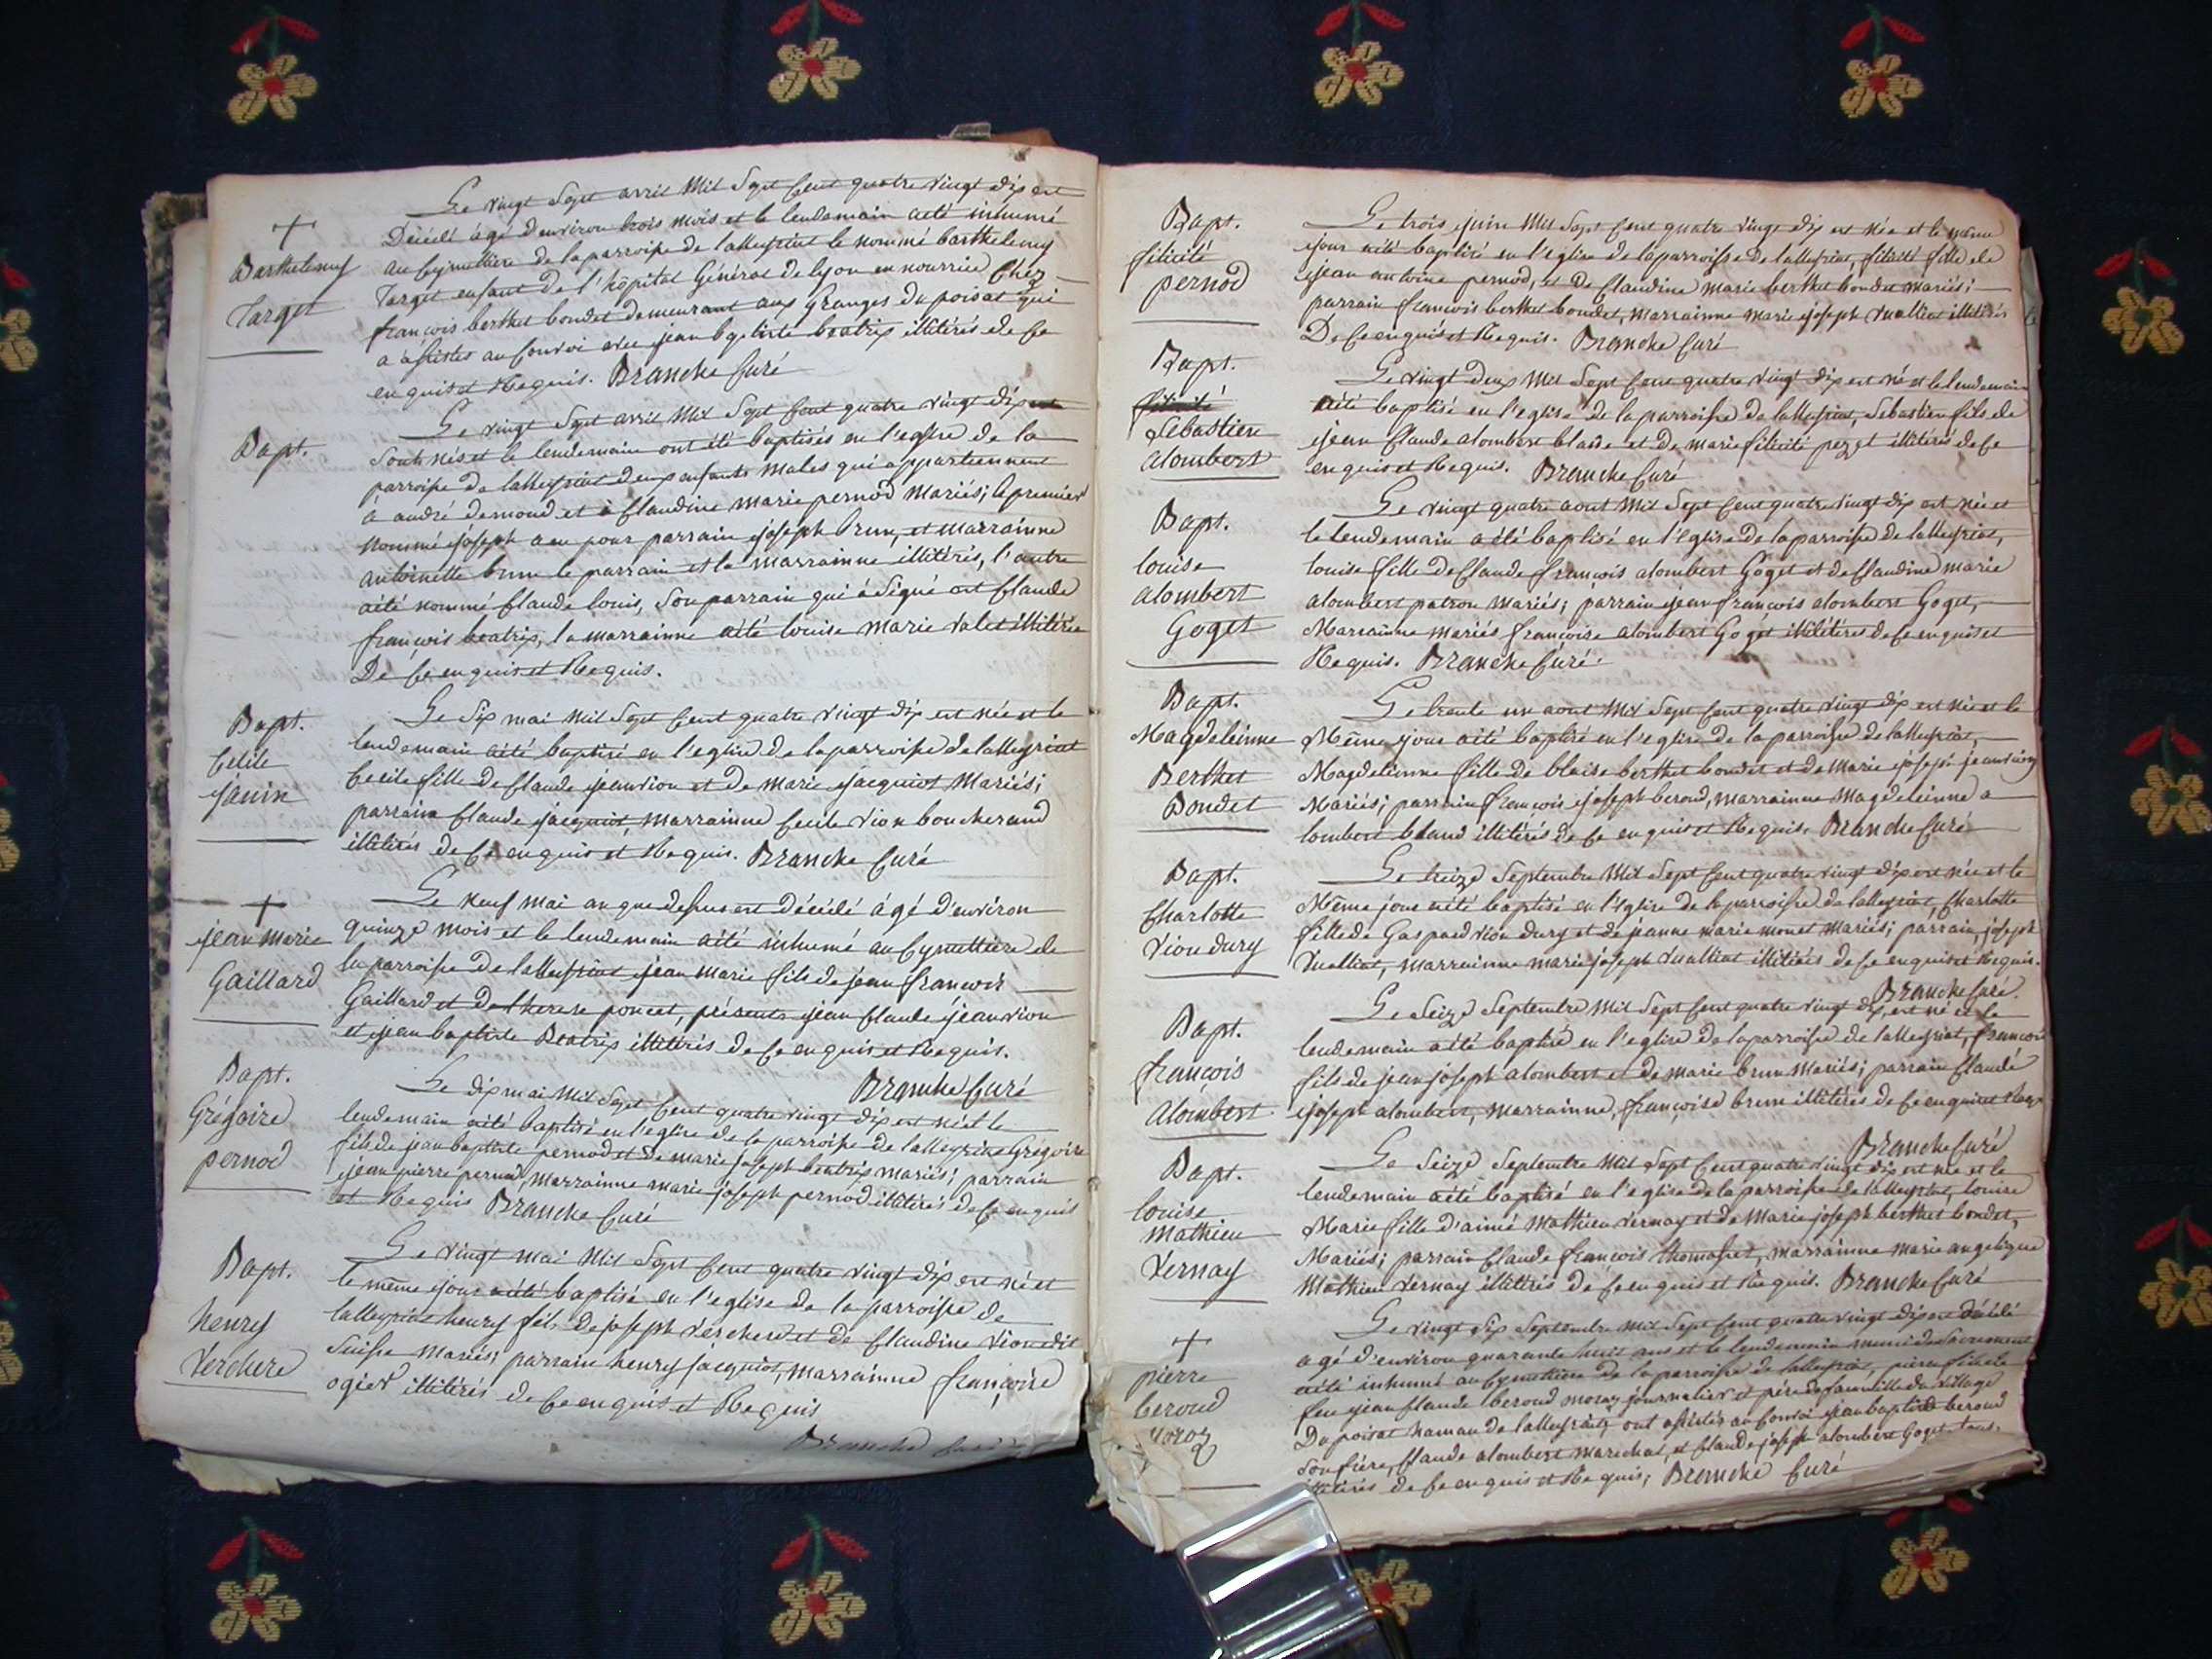 Le vingt Sept avril Mil Sept Cent quatre vingt dix est
+
Décédé âgé d'environ trois mois et le lendemain aété inhumé
Barthelemy
au Cymettiere de la parroisse de lalleyriat le nommé barthelemy
Target
Target enfant de l'hôpital Général de lyon en nourrice Chez
françois berthet bondet demeurant aux Granges du poisat qui
a assister au Convoi avec jean bptiste beatrix illitérés de Ce
enquis et Requis. Branche Curé
Le vingt Sept avril Mil Sept Cent quatre vingt dix
Bapt.
Sonts nés et le lendemain ont été baptisés en l'eglise de la
parroisse de lalleyriat deux enfants Males qui appartiennent
a andré demond et à Claudine Marie pernod Mariés; le premier
nommé joseph a eu pour parrain joseph brun, et marrainne
antoinette brun le parrain et la marrainne illitérés, l'autre
aété nommé Claude louis, Son parrain qui à Signé est Claude
françois beatrix, la marrainne aété louise Marie valet illitérée
De Ce enquis et Requis.
Bapt.
Le Six mai Mil Sept Cent quatre vingt dix est née et le
Cecile
lendemain aété baptisé en l'eglise de la parroisse de lalleyriat
janin
Cecile fille de Claude jeanvion et de Marie jacquiot Mariés;
parrain Claude jacquiot, marrainne Cecile vion boucherand
illitérés de Ce enquis et Requis. Branche Curé
+
Le Neuf mai an que dessus est Décédé âgé d'environ
jean Marie
quinze mois et le lendemain aété inhumé au Cymettiere de
Gaillard
la parroisse de lalleyriat jean Marie fils de jean françois
Gaillard et de therese poncet, présents jean Claude jeanvion
et jean baptiste Beatrix illitérés de Ce enquis et Requis.
Branche Curé
Bapt.
Le dix mai Mil Sept Cent quatre vingt dix est né et le
Grégoire
lendemain aété baptisé en l'eglise de la parroisse de lalleyriat Gregoire
pernod
fils de jean baptiste pernod et de marie joseph beatrix mariés; parrain
jean pierre pernod, Marrainne marie joseph pernod illitérés de Ce enquis
et Requis Branche Curé
Bapt.
Le vingt mai Mil Sept Cent quatre vingt dix est né et
henry
le même jour aété baptisé en l'eglise de la parroisse de
Verchere
lalleyriat henry fils de joseph Verchere et de Claudine vion dit
Suisse Mariés; parrain henry jacquiot, Marrainne françoise
ogier illitérés de Ce enquis et Requis
Branche Curé
Bapt.
Le trois juin Mil Sept Cent quatre vingt dix est née et le même
félicité
jour aété baptisé en l'eglise de la parroisse de lalleyriat, félicité fille de
pernod
jean antoine pernod, et de Claudine marie berthet bondet mariés;
parrain françois berthet bondet, marrainne marie joseph vualliat illitérés
De Ce enquis et Requis. Branche Curé
Bapt.
Le vingt Deux Mil Sept Cent quatre vingt dix est né et le lendemain
félicité
aété baptisé en l'eglise de la parroisse de lalleyriat, Sebastien fils de
Sebastien
jean Claude alombert blaise et de marie félicité pezet illitérés de Ce
alombert
enquis et Requis. Branche Curé
Le vingt quatre aout Mil Sept Cent quatre vingt dix est née et
Bapt.
le lendemain a été baptisé en l'eglise de la parroisse de lalleyriat,
louise
louise fille de Claude françois alombert Goget et de Claudine marie
alombert
alombert patron Mariés; parrain jean françois alombert Goget,
Goget
Marrainne mariés françoise alombert Goget illitérés de Ce enquis et
Requis. Branche Curé.
Bapt.
Le trente un aout Mil Sept Cent quatre vingt dix est née et le
Magdeleinne
Même jour aété baptisé en l'eglise de la parroisse de lalleyriat,
Berthet
Magdeleinne fille de blaise berthet bondet et de Marie joseph jeanvion
Bondet
Mariés; parrain françois joseph beroud, marrainne Magdeleinne a
lombert bland illitérés de Ce enquis et Requis. Branche Curé
Bapt.
Le treize Septembre Mil Sept Cent quatre vingt dix est née et le
Charlotte
Même jour aété baptisé en l'eglise de la parroisse de lalleyriat, Charlotte
Vion dury
fille de Gaspard vion dury et de jeanne marie monet Mariés; parrain, joseph
Vualliat, marrainne marie joseph Vualliat illitérés de Ce enquis et Requis.
Branche Curé.
Bapt.
Le Seize Septembre Mil Sept Cent quatre vingt dix, est né et le
françois
lendemain aété baptisé en l'eglise de la parroisse de lalleyriat, françois
alombert
fils de jean joseph alombert et de marie brun Mariés; parrain Claude
joseph alombert, marrainne, françoise brun illitérés de Ce enquis et Requ
Branche Curé
Bapt.
Le Seize Septembre Mil Sept Cent quatre vingt dix est née et le
louise
lendemain aété baptisé en l'eglise de la parroisse de lalleyriat, louise
Mathieu
Marie fille d'aimé Mathieu Vernay et de Marie joseph berthet bondet,
Vernay
Mariés; parrain Claude françois thomasset, marrainne marie angelique
Mathieu Vernay illitérés de Ce enquis et Requis. Branche Curé
+
Le vingt Six Septembre Mil Sept Cent quatre vingt dix est Décédé
pierre
agé d'environ quarante huit ans et le lendemain muni de Sacrement
beroud
aété inhumé au Cymettiere de la parroisse de lalleyriat, pierre fils de
moroz
feu jean Claude beroud moroz journalier et père de famille du village
Du poisat hamau de lalleyriat, ont assistés au Convoi jean baptiste beroud
Son frère, Claude alombert Marechal, et Claude joseph alombert Goget tous
illitérés de Ce enquis et Requis; Branche Curé